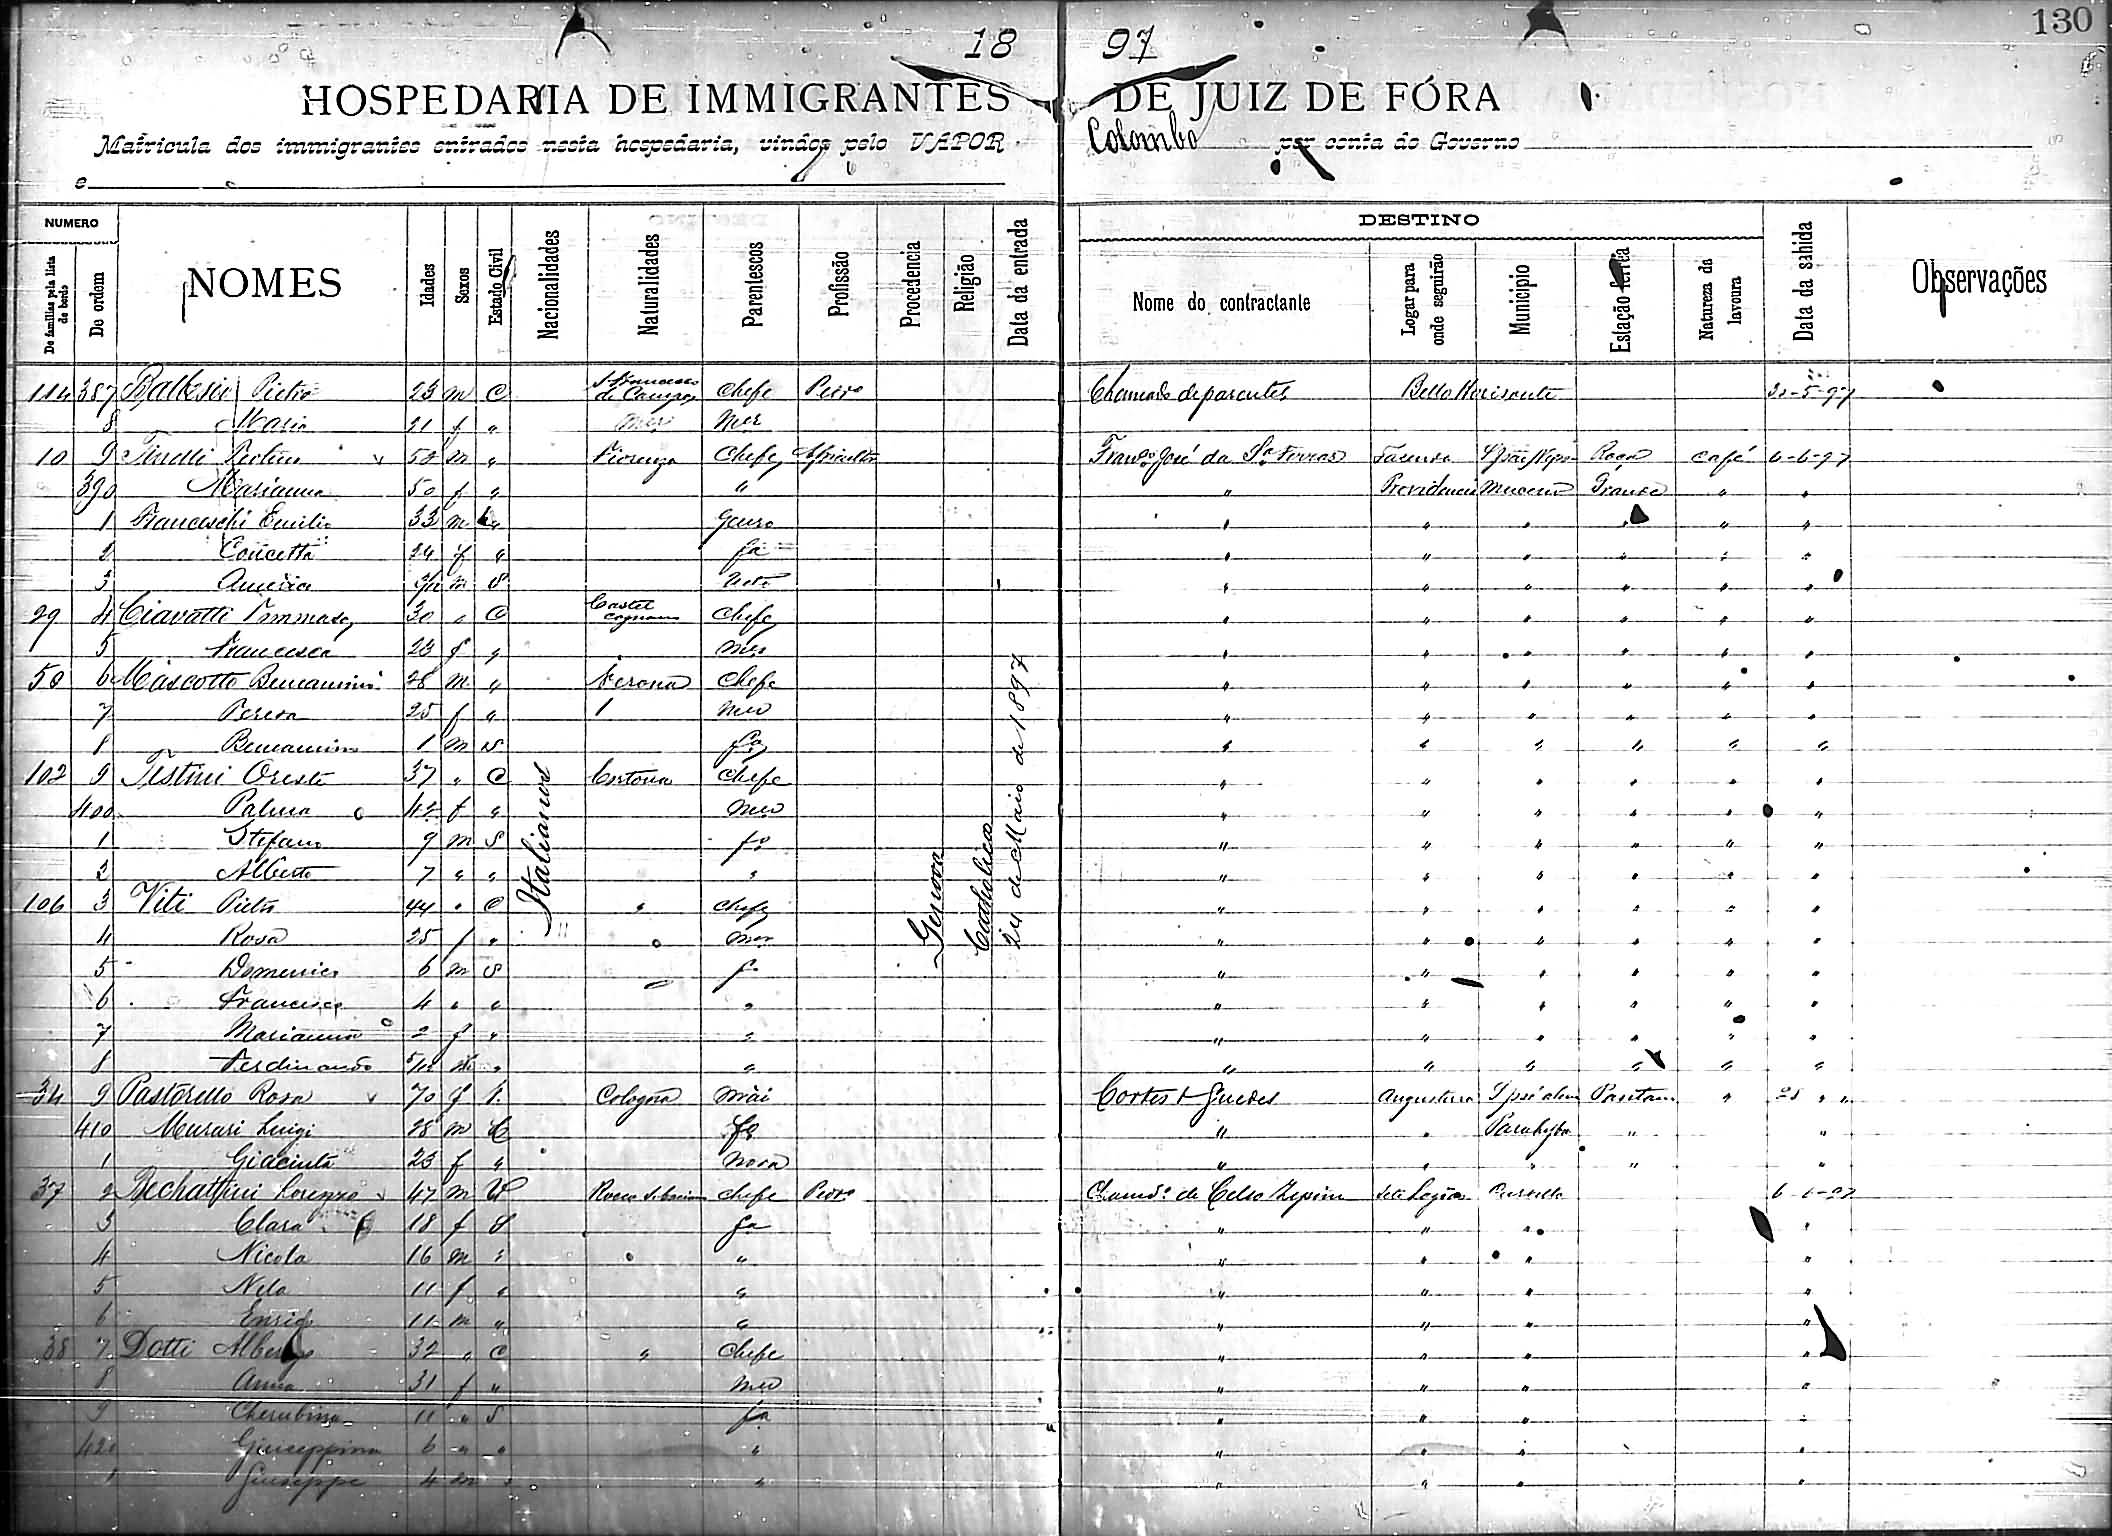 130
18 97
HOSPEDARIA DE IMMIGRANTES DE JUIZ DE FÓRA
Matricula dos immigrantes entrados nesta hospedaria, vindos pelo VAPOR Colombo por conta do Governo
e
NUMERO
DESTINO
De familias pela lista de bordo
De ordem
NOMES
Idades
Sexos
Estado Civil
Nacionalidades
Naturalidades
Parentescos
Profissão
Procedencia
Religião
Data da entrada
Nome do contractante
Logar para onde seguirão
Municipio
Estação ferrea
Natureza da lavoura
Data da sahida
Observações
Italianos
Genova
Catholica
24 de Maio de 1897
114 387 Pietro 23 m C Chefe Pedro Chamado de parentes Bello Horisonte
8 Maria 21 f " Mer
10 9 Tinelli m " Firenze Chefe José da Fazenda Roça Café 6-6-97
390 Marianna 50 f " " " Providencia Grande " "
1 Franceschi Emilio 33 m " Genro " " " " " "
2 Concetta 24 f " fa " " " " " "
3 m S Neto " " " " " "
29 4 Ciavatti Tommaso 30 " C Castel Chefe " " " " " "
5 Francesca 23 f " Mer " " " " " "
50 6 Mascotto Beniamino 28 m " Verona Chefe " " " " " "
7 Teresa 25 f " Mer " " " " " "
8 Beniamino 1 m S fo " " " " " "
102 9 Testini Oreste 37 " C Cortona Chefe " " " " " "
400 Palma 42 f " Mer " " " " " "
1 Stefano 9 m S fo " " " " " "
2 Alberto 7 " " " " " " " " "
106 3 Viti Pietro 44 " C " Chefe " " " " " "
4 Rosa 25 f " " Mer " " " " " "
5 Domenico 6 m S fo " " " " " "
6 Francisco 4 " " " " " " " " "
7 Marianna 2 f " " " " " " " "
8 Ferdinando " " " " " " " "
34 9 Pastorello Rosa 70 f Cologna Mãi Cortes & Guedes Angustura " 28 " "
410 Murari Luigi 28 m C fo " " Parahyba " "
1 Giacinta 23 f " Nora " " " " "
37 2 Bechattini Lorenzo 47 m V Chefe Pedro de Celso 6-6-97
3 Clara 18 f S fa " " " "
4 Nicola 16 m " " " " " " "
5 Nela 11 f " " " " " "
6 11 m " " " " " "
38 7 Dotti 32 " C " Chefe " " " "
8 Anna 31 f " Mer " " " "
9 Cherubina 11 " S fa " " " "
420 Giuseppina 6 " " " " " " "
1 Giuseppe 4 m " " " " " "